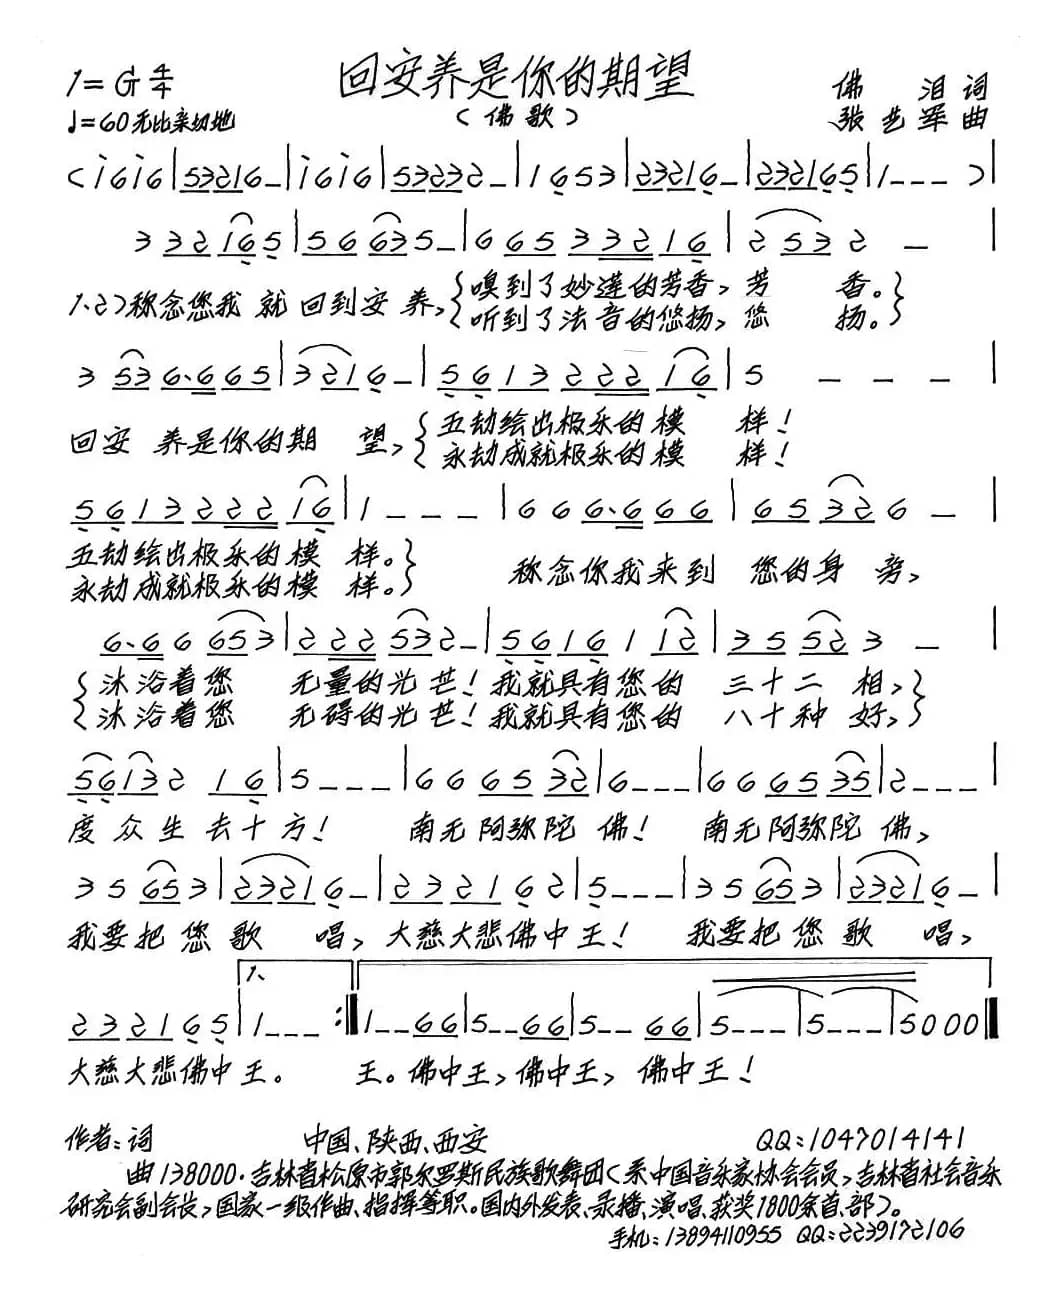 回安养是你的期望
1=G 4/4
（佛歌）
佛泪词
♩=60 无比亲切地
张艺军曲
(i6i6|53216-|i6i6|53232-|1653|23216-|232165|1---)|
332165|56635-|66533216|2532-|
1.2)称念您我就回到安养,{嗅到了妙莲的芳香,芳香。}
{听到了法音的悠扬,悠扬。}
3536·665|33216-|5613222216|5---|
回安养是你的期望,{五劫绘出极乐的模样!
{永劫成就极乐的模样!
5613222216|1---|666·666|653326-|
五劫绘出极乐的模样。} 称念你我来到您的身旁,
永劫成就极乐的模样。}
6·66653|222532-|5616112|35523-|
{沐浴着您 无量的光芒!我就具有您的三十二相,}
{沐浴着您 无碍的光芒!我就具有您的八十种好,}
5613216|5---|666532|6---|666535|2---|
度众生去十方! 南无阿弥陀佛! 南无阿弥陀佛,
35653|23216-|232162|5---|35653|23216-|
我要把您歌唱,大慈大悲佛中王! 我要把您歌唱,
1.
232165|1---:‖1--66|5--66|5--66|5---|5---|5000‖
大慈大悲佛中王。 王。佛中王,佛中王,佛中王!
作者:词 中国、陕西、西安 QQ:1047014141
曲 138000·吉林省松原市郭尔罗斯民族歌舞团(系中国音乐家协会会员,吉林省社会音乐
研究会副会长,国家一级作曲、指挥等职。国内外发表、录播、演唱、获奖1800余首、部)。
手机:13894110955 QQ:2239172106